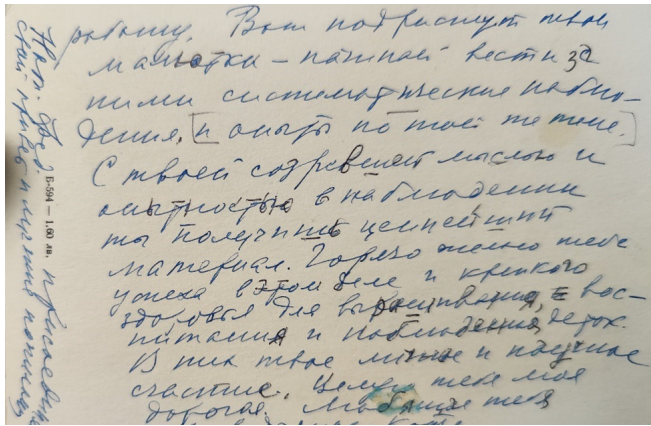 работу. Вот подрастут твои
малютки – начинай вести за
ними систематические наблю-
дения, [и опыты по твоей же теме.]
С твоей созревшей мыслью и
опытностью в наблюдении
ты получишь ценнейший
материал. Горячо желаю тебе
успеха в этом деле и крепкого
здоровья для выращивания, вос-
питания и наблюдения деток.
В них твое личное и научное
счастье. Целую тебя моя
дорогая. тебя
Б-594 — 1,60 лв.
привет и